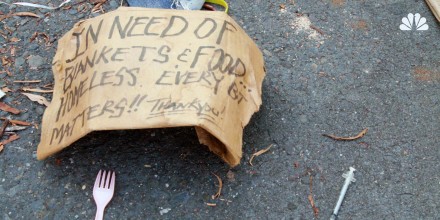 IN NEED OF
BLANKETS & FOOD.
HOMELESS. EVERY BIT
MATTERS!! THANK YOU!